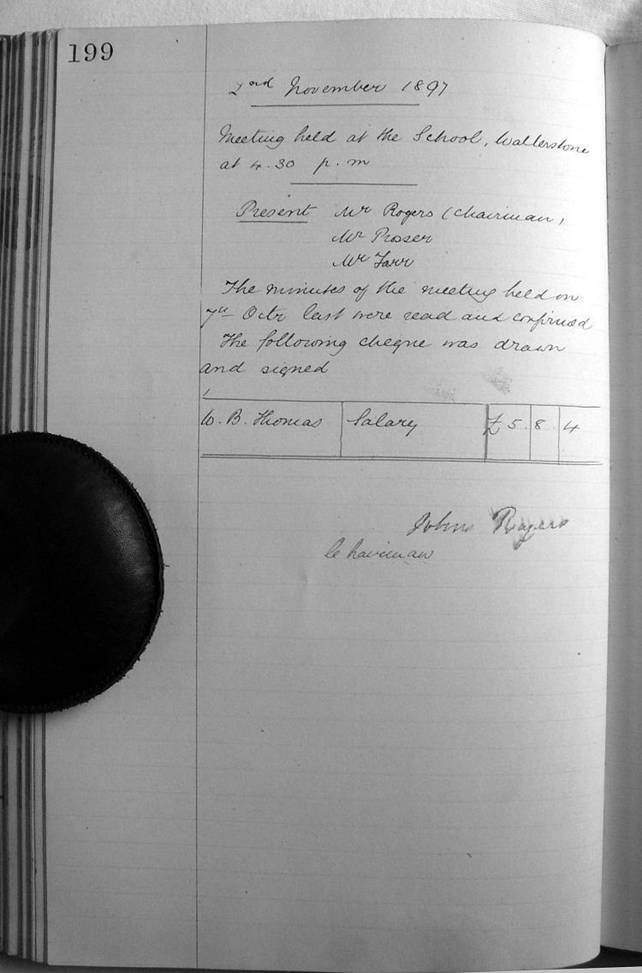 199
2nd November 1897
Meeting held at the School, Wallerstone
at 4.30 p.m
Present Mr Rogers (Chairman,
Mr Prosser
Mr Farr
The minutes of the meeting held on
7th Octr last were read and confirmed
The following cheque was drawn
and signed
W. B. Thomas Salary £ 5. 8 4
John Rogers
Chairman